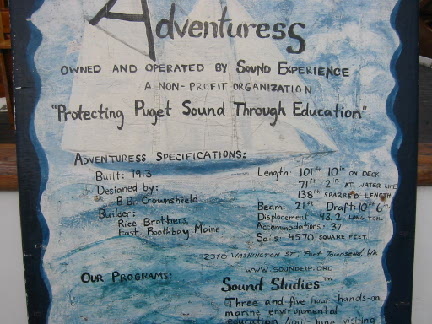 Adventuress
OWNED AND OPERATED BY SOUND EXPERIENCE
A NON-PROFIT ORGANIZATION
"Protecting Puget Sound Through Education"
ADVENTURESS SPECIFICATIONS:
Built: 1913
Designed by:
B.B. Crowninshield
Builder:
Rice Brothers
East Boothbay Maine
Length: 101' 10" ON DECK
71' 2" AT WATER LINE
138' SPARRED LENGTH
Beam: 21' Draft: 10' 6"
Displacement: 43.2
Accomodations: 37
Sails: 4570 SQUARE FEET
2310 WASHINGTON ST Port Townsend, WA
WWW.SOUNDEXP.ORG
OUR PROGRAMS:
Sound Studies™
Three and five hour hands-on
marine environmental
education